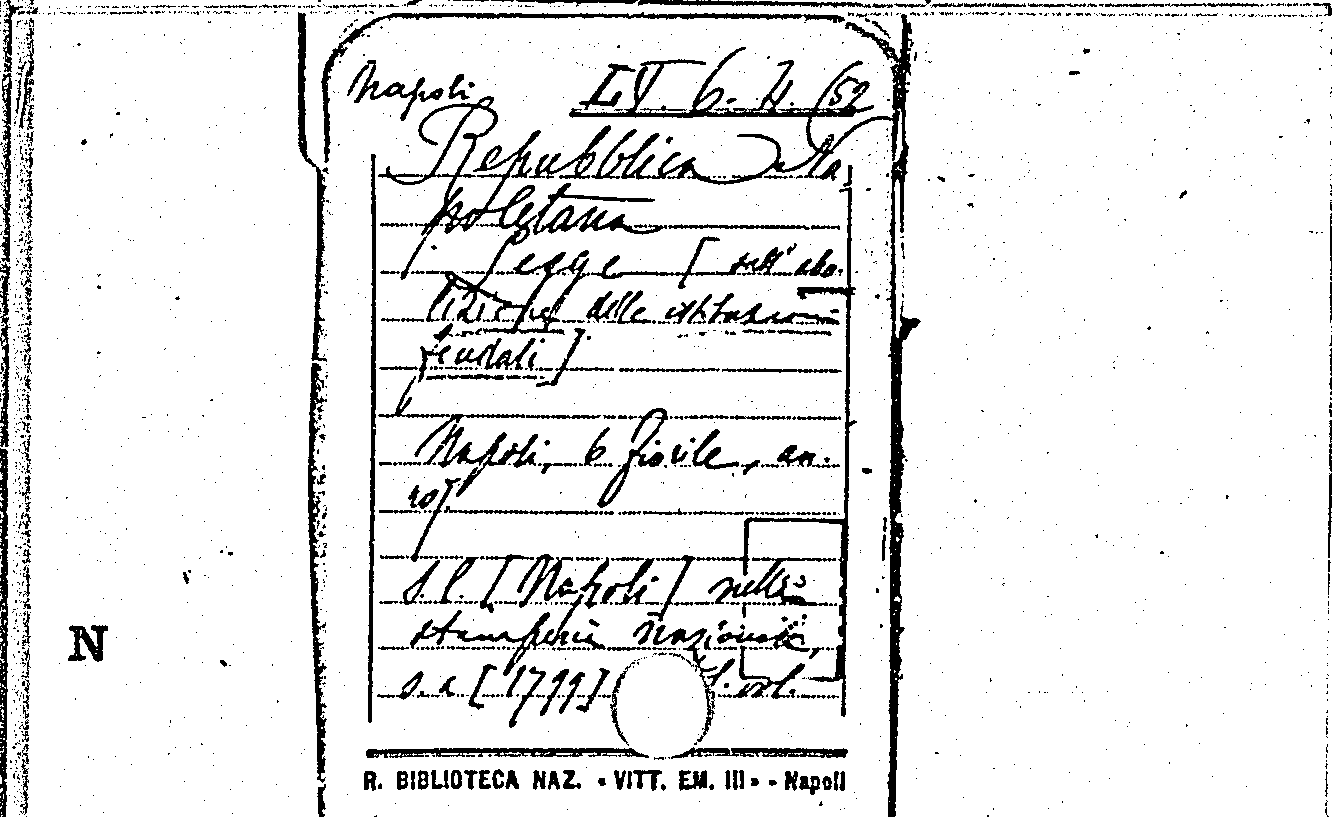 Napoli LV. 6. H. (52
Repubblica Na
poletana
Legge [ sull' abo-
lizione delle istituzioni
feudali ]
Napoli, 6 fiorile, an-
no 7.
s. l. [ Napoli ] nella
stamperia Nazionale,
s. a [ 1799 ] f. vol.
N
R. BIBLIOTECA NAZ. « VITT. EM. III » - Napoli